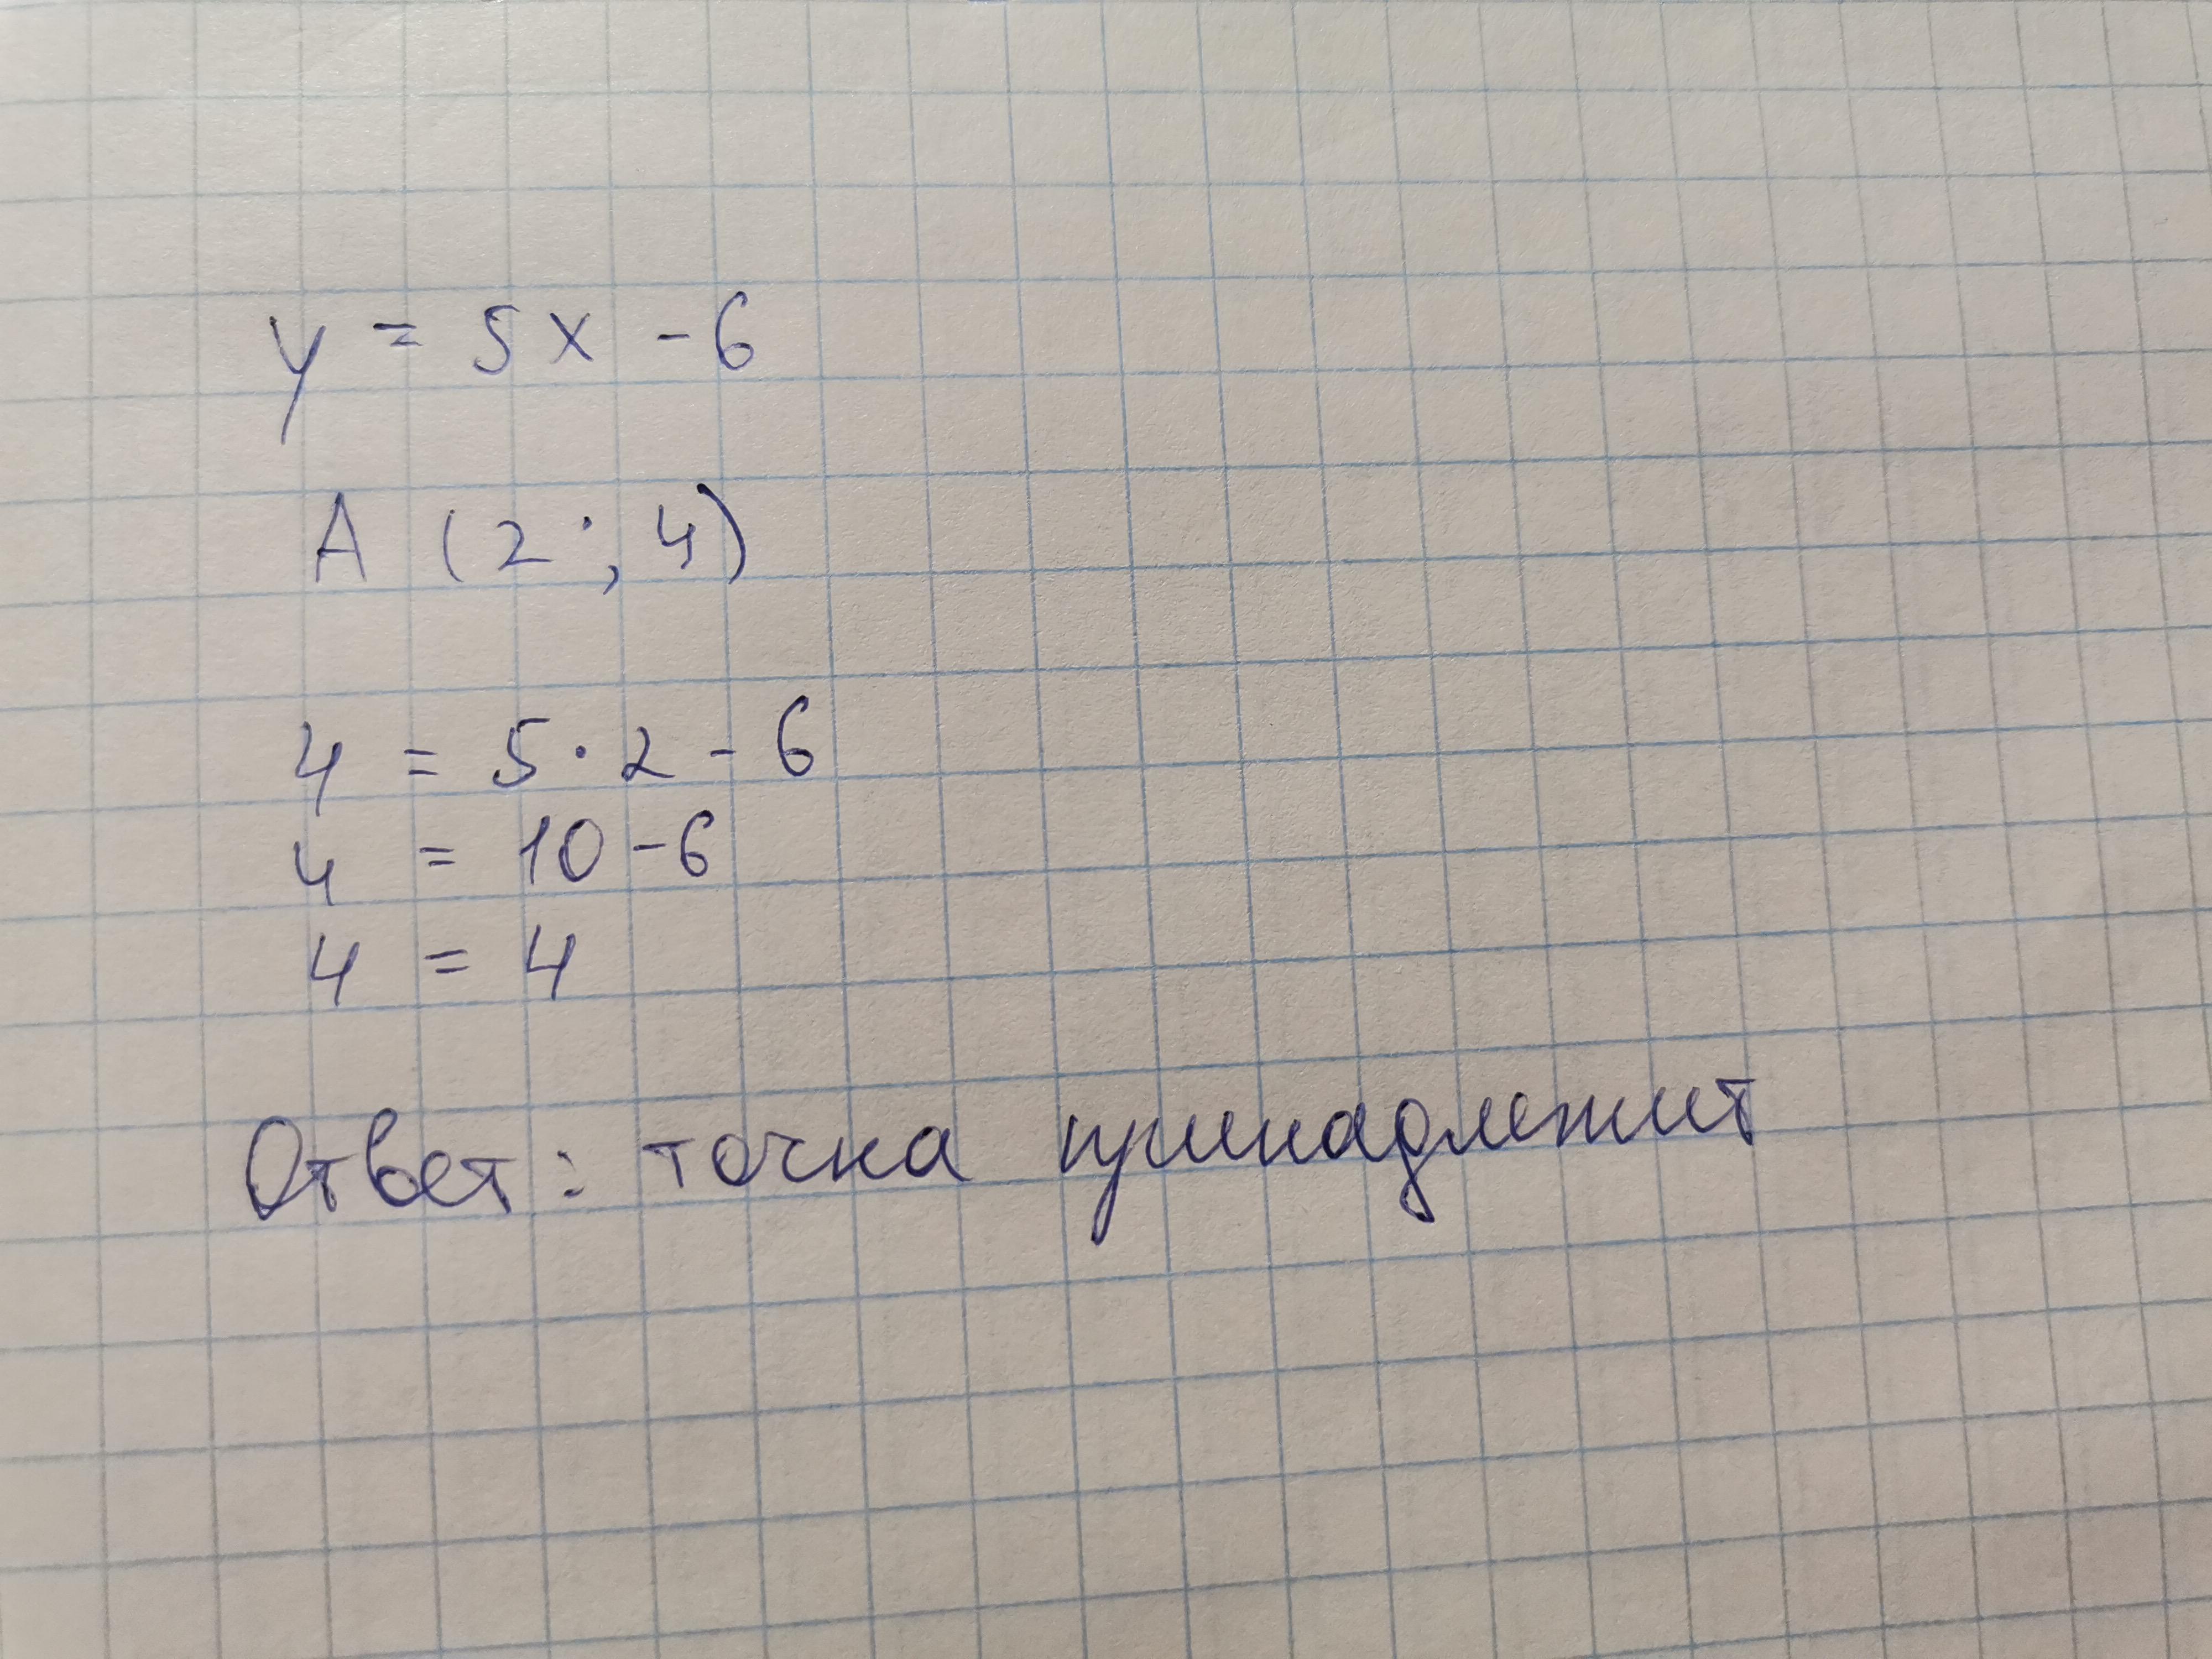 y = 5x - 6
A (2 ; 4)
4 = 5 · 2 - 6
4 = 10 - 6
4 = 4
Ответ: точка принадлежит